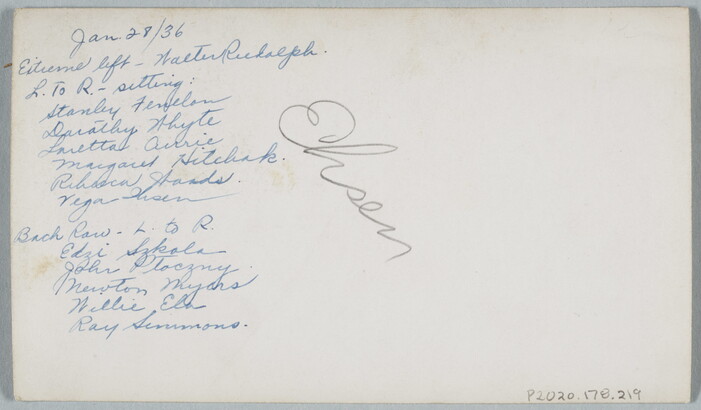 Jan. 28/36
Extreme left - Walter Rudolph.
L. to R. - sitting:
Stanley Fenelon
Dorothy Whyte
Loretta Currie
Margaret Hitchak.
Rebecca Woods.
Vega
Back Row - L. to R.
Edzi Szkola
John Ptoczny.
Newton Myers
Willie Ela
Ray Simmons.
P2020.178.219